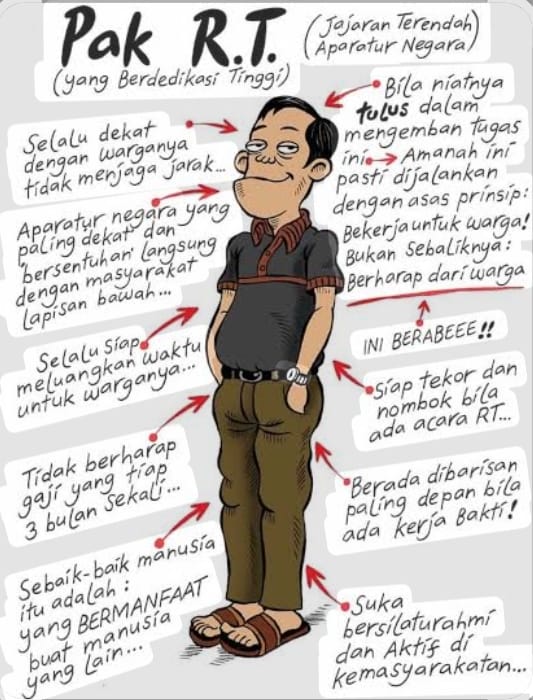 Pak R.T.
(yang Berdedikasi Tinggi)
(Jajaran Terendah
Aparatur Negara)
Selalu dekat
dengan warganya
tidak menjaga jarak...
Aparatur negara yang
paling dekat dan
bersentuhan langsung
dengan masyarakat
lapisan bawah...
Selalu siap
meluangkan waktu
untuk warganya...
Tidak berharap
gaji yang tiap
3 bulan sekali...
Sebaik-baik manusia
itu adalah:
yang BERMANFAAT
buat manusia
yang lain...
Bila niatnya
tulus dalam
mengemban tugas
ini Amanah ini
pasti dijalankan
dengan asas prinsip:
Bekerja untuk warga!
Bukan Sebaliknya:
Berharap dari warga
INI BERABEEE!!
Siap tekor dan
nombok bila
ada acara RT...
Berada dibarisan
paling depan bila
ada kerja Bakti!
Suka
bersilaturahmi
dan Aktif di
kemasyarakatan...